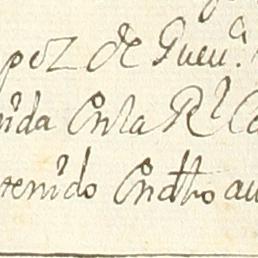 pez de Gueu.ª
nida Enla R.l C
tenido Endho au